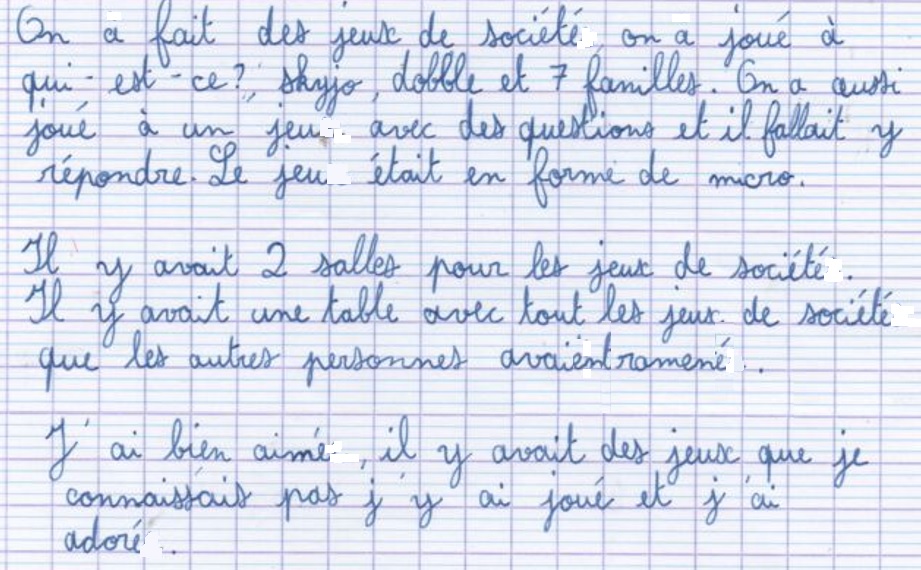 On a fait des jeux de société, on a joué à
qui-est-ce?, skyjo, dobble et 7 familles. On a aussi
joué à un jeu avec des questions et il fallait y
répondre. Le jeu était en forme de micro.
Il y avait 2 salles pour les jeux de société.
Il y avait une table avec tout les jeux de société
que les autres personnes avaient ramené.
J'ai bien aimé, il y avait des jeux que je
connaissais pas j'y ai joué et j'ai
adoré.